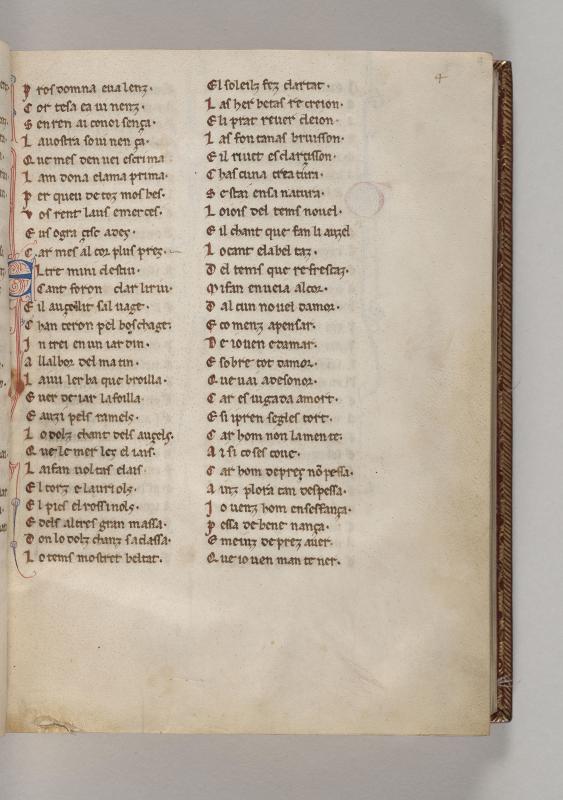 4
P ros domna eualenz·
C or tesa ea vi nenz·
S en ren ai conoi sença·
L a uostra so ui nen ça·
Q ue mes den uei escrima
L am dona clama prima·
P er queu de toz mos bes·
V os rent laus emerces·
E us ogra gise ades·
C ar mes al cor plus pres·
L altre mini clestiu·
C ant foron clar li riu·
E il auçellit sal uage·
C han teron pel boschage·
I n trei en un iar din·
A llalbor del ma tin·
L aui lerba que broilla·
E uer de iar la foilla·
E auzi pels ramels·
L o dolz chant dels auçels·
Q ue le mer lez el iais·
L aifan uoltas elais·
E l torz e lauriolz·
E l pies el rossinolz·
E dels altres gran massa·
D on lo dolz chanz sadassa·
L o tems mostret beltat·
E l soleilz fez clartat·
L as her betas re creion·
E li prat reuer deion·
L as fon tanas bruisson·
E il riuet esclarçisson·
C has cuna crea tura·
S estai en sa natura·
L oiois del tems nouel·
E il chant que fan li auzel
L o cant elabel taz·
D el tems que refrescaz·
M ifan enueia alcor·
D al cun no uel damor·
E co menz apensar·
D e iouen e damar·
E sobre tot damor·
Q ue uai adesonor·
C ar es iugada amort·
E si ipren segles tort·
C ar hom non lamen te·
A i si co ses coue·
C ar hom de preç nõ pessa·
A inz plora can despessa·
I o uenz hom ensessança·
P essa de bene nança·
E meinz de prez auer·
Q ue io uen man te ner·